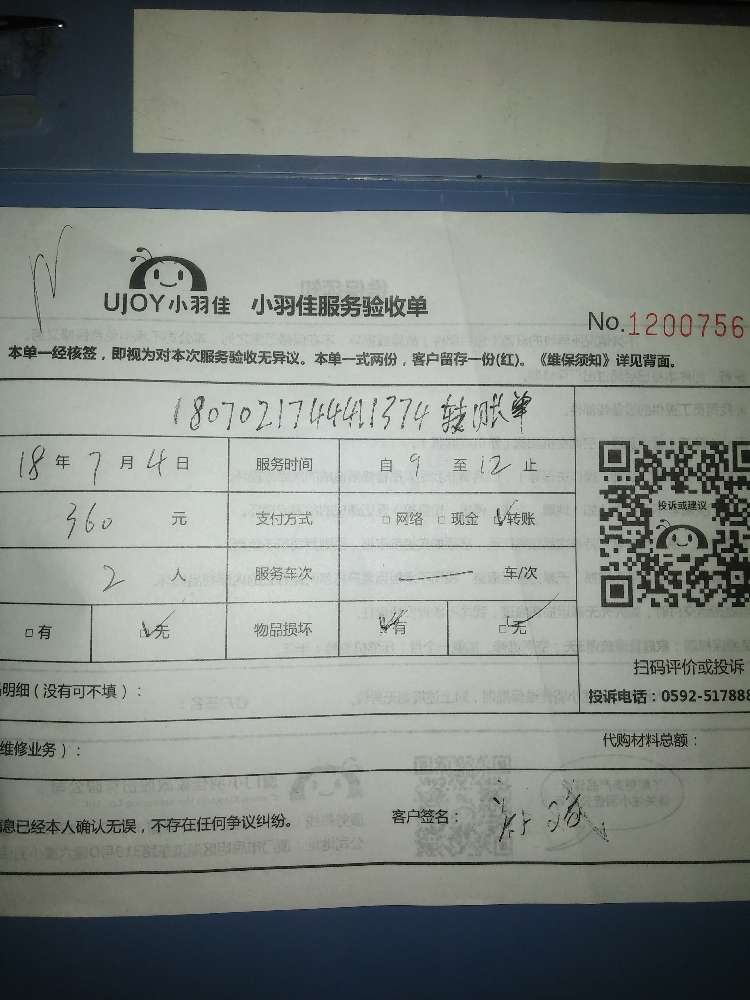 UJOY小羽佳 小羽佳服务验收单
No.1200756
本单一经核签，即视为对本次服务验收无异议。本单一式两份，客户留存一份(红)。《维保须知》详见背面。
180702174411374 转账单
18 年 7 月 4 日 服务时间 自 9 至 12 止
360 元 支付方式 □网络 □现金 ☑转账
投诉或建议
2 人 服务车次 — 车/次
□有 ☑无 物品损坏 □有 ☑无
扫码评价或投诉
明细（没有可不填）：
投诉电话：0592-517888
维修业务）：
代购材料总额：
息已经本人确认无误，不存在任何争议纠纷。 客户签名：